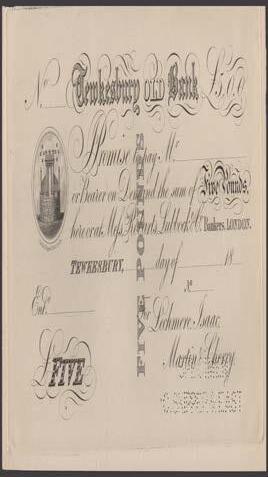 No Tewkesbury OLD Bank £5.0.0
I Promise to pay Mr
or Bearer on Demand the sum of Five Pounds.
here or at Messrs Roberts, Lubbock & Co. Bankers LONDON.
TEWKESBURY, day of 18
No
Entd
For Lechmere Isaac
Martin & Cherry
£ FIVE
FIVE POUNDS